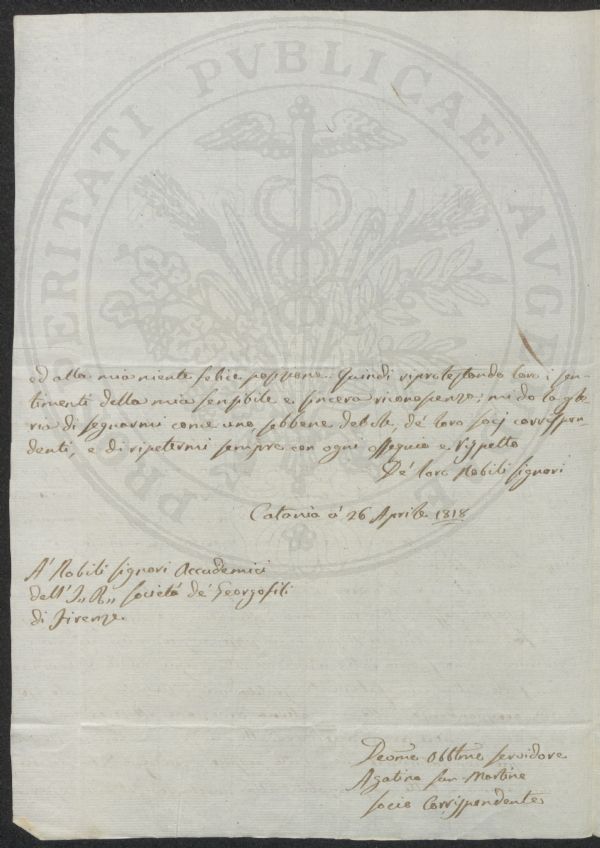 PROSPERITATI PVBLICAE AVGENDAE
ed alla mia niente felice posizione. Quindi riprotestando loro i sen-
timenti della mia sensibile e sincera riconoscenza; mi do la glo-
ria di segnarmi come uno, sebbene debole, de' loro socj corrispon-
denti, e di ripetermi sempre con ogni ossequio e rispetto
De' loro Nobili Signori
Catania a' 26 Aprile 1818
A' Nobili Signori Accademici
dell' I., R., Società de' Georgofili
di Firenze.
Devo͞me Obblmo͞ servidore
Agatino San-Martino
socio Corrispondente